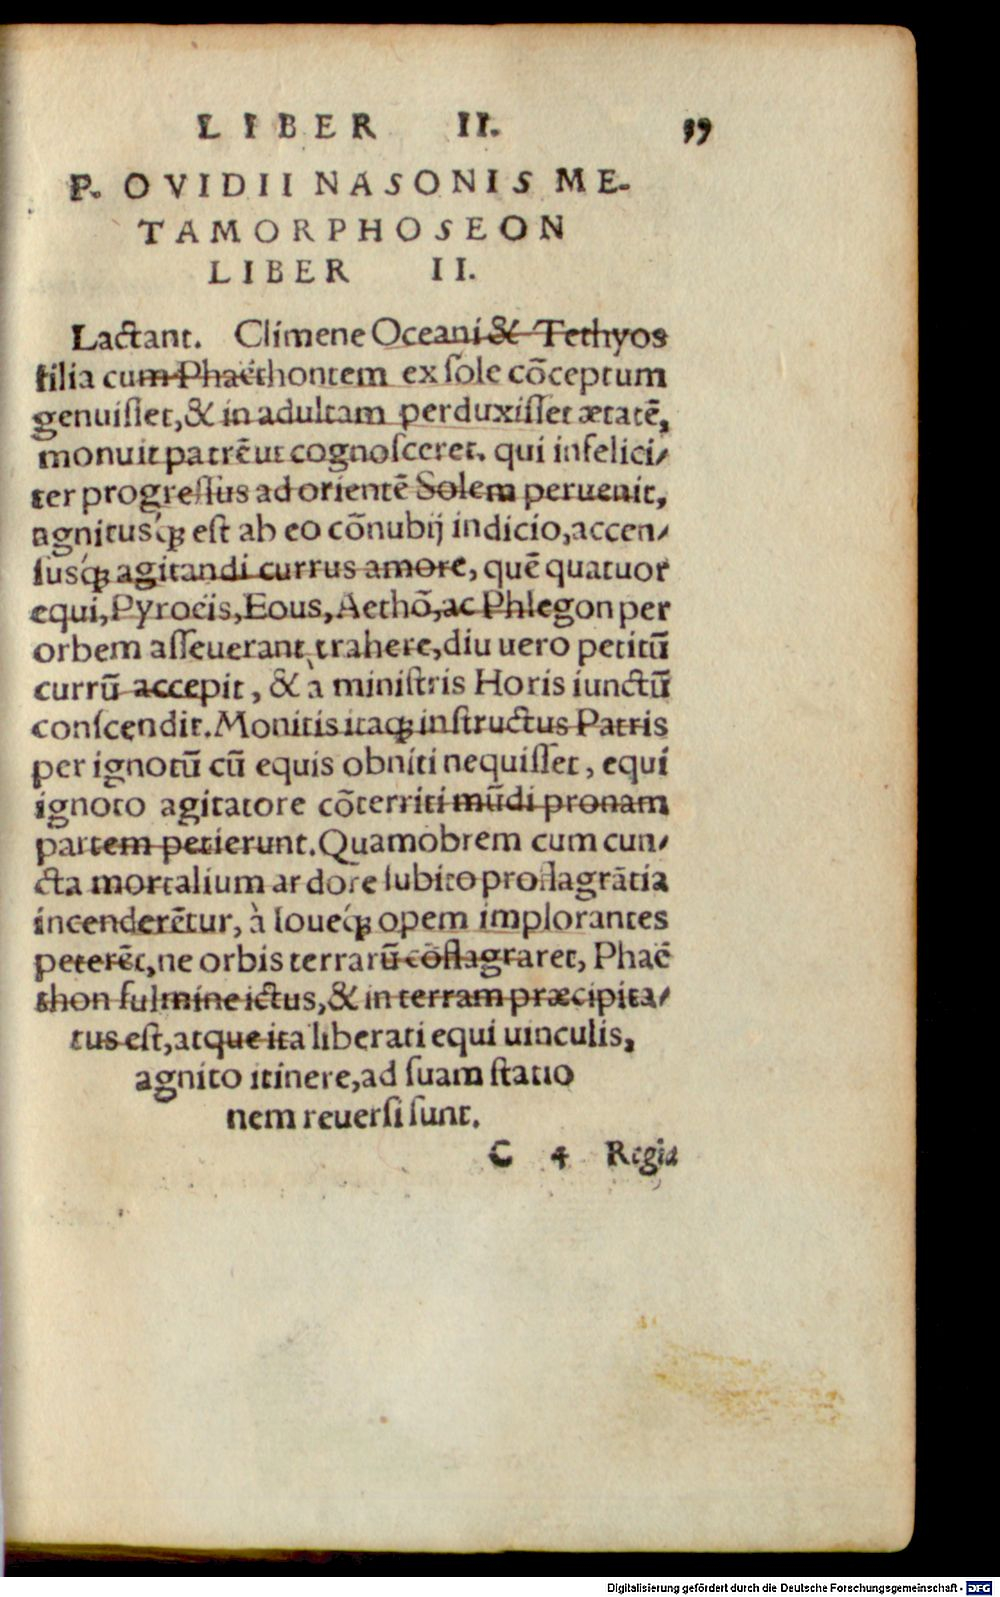 LIBER II. 39
P. OVIDII NASONIS ME-
TAMORPHOSEON
LIBER II.
Lactant. Climene Oceani & Tethyos
filia cum Phaëthontem ex sole cōceptum
genuisset, & in adultam perduxisset ætatē,
monuit patrēut cognosceret. qui infelici/
ter progressus ad orientē Solem peruenit,
agnitusq́ꝫ est ab eo cōnubij indicio, accen/
susq́ꝫ agitandi currus amore, quē quatuor
equi, Pyrocis, Eous, Aethō, ac Phlegon per
orbem asseuerant trahere, diu uero petitū
currū accepit, & à ministris Horis iunctū
conscendit. Monitis itaqꝫ instructus Patris
per ignotū cū equis obniti nequisset, equi
ignoto agitatore cōterriti mūdi pronam
partem petierunt. Quamobrem cum cun/
cta mortalium ardore subito proflagrātia
incenderētur, à Ioueq́ꝫ opem implorantes
peterēt, ne orbis terrarū cōflagraret, Phaë
thon fulmine ictus, & in terram præcipita/
tus est, atque ita liberati equi uinculis,
agnito itinere, ad suam statio
nem reuersi sunt.
C 4 Regia
Digitalisierung gefördert durch die Deutsche Forschungsgemeinschaft - DFG